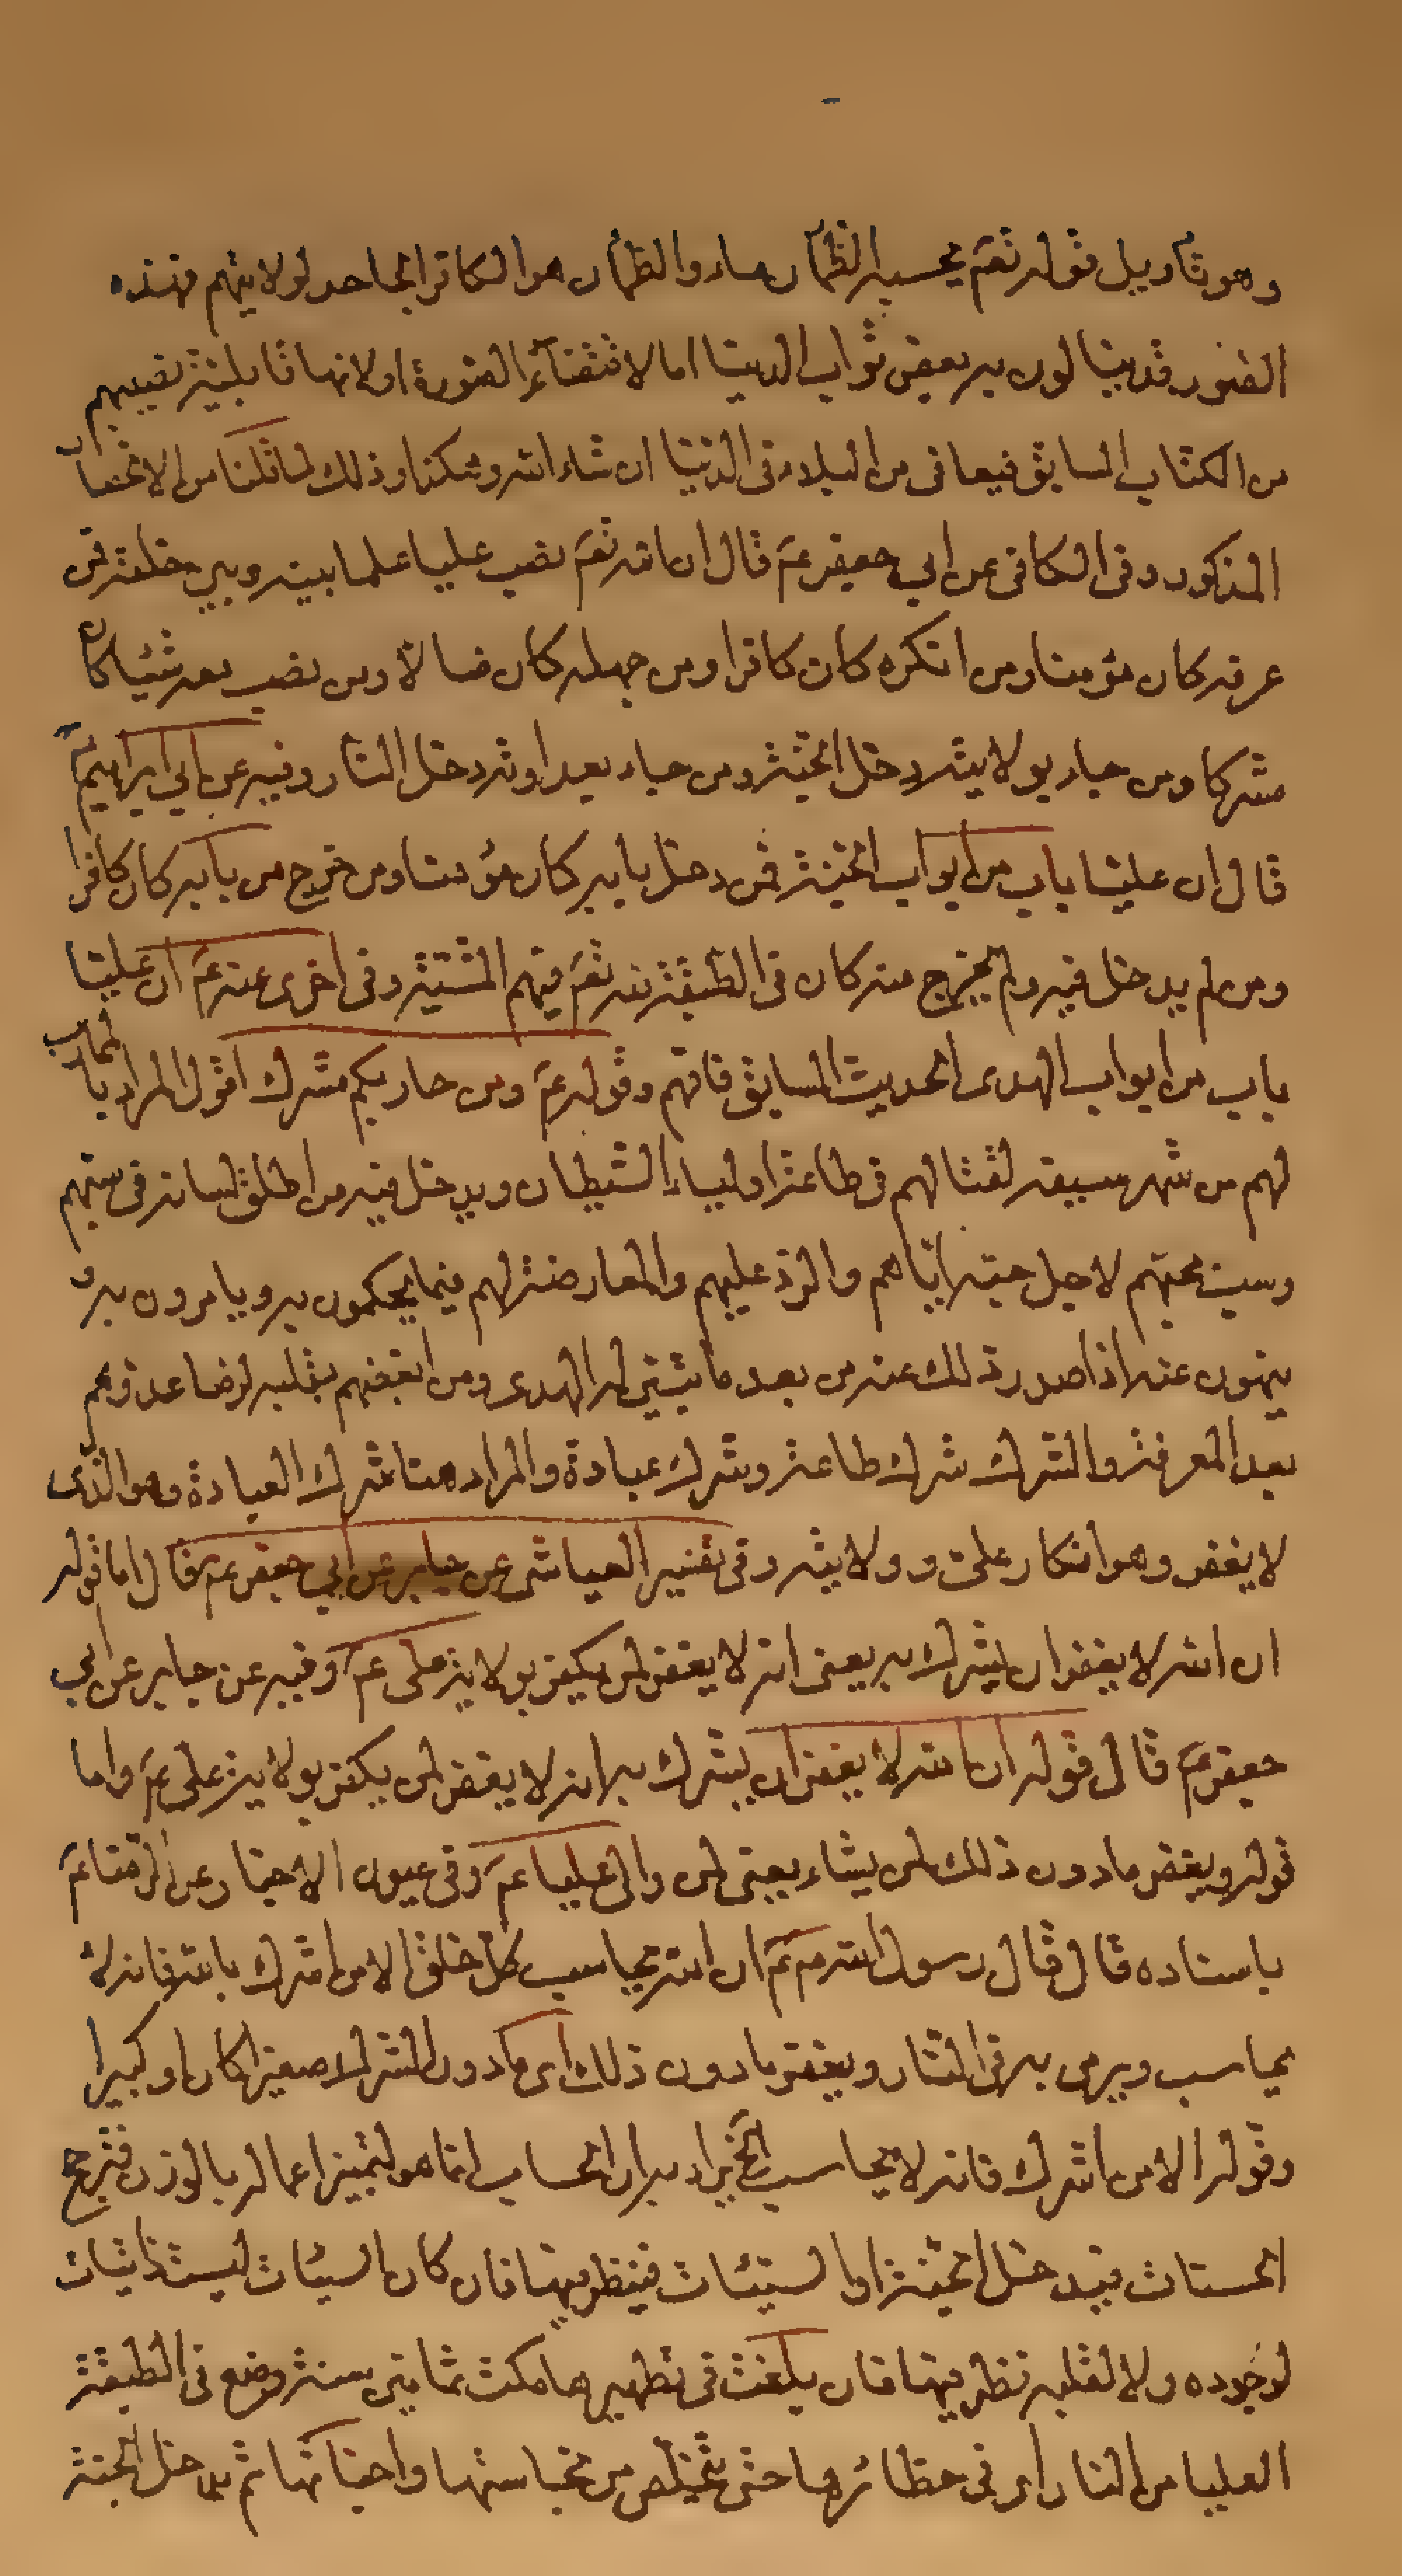 وهو تأويل قوله تعم يحسبه الظمآن ماء والظمآن هو الكافر الجاحد لولايتهم فهذه
الصور قد ينالون به بعض ثواب الدنيا اما لاقتضاء الصورة اولانها قابلية نصيبهم
من الكتاب السابق فيعافى من البلاء فى الدنيا ان شاء الله وتمكنا وذلك لما قلنا من الاتصاف
المذكور وفى الكافى عن ابي جعفر عم قال ان الله تعم نصب عليا علما بينه وبين خلقه فمن
عرفه كان مؤمنا ومن انكره كان كافرا ومن جهله كان ضالا ومن نصب معه شيئا كان
مشركا ومن جاء بولايته دخل الجنة ومن جاء بعداوته دخل النار وفيه عن ابي ابراهيم عم
قال ان عليا باب من ابواب الجنة فمن دخل بابه كان مؤمنا ومن خرج من بابه كان كافرا
ومن لم يدخل فيه ولم يخرج منه كان فى الطبقة لله تعم فيهم المشية وفى اخرى عنه عم ان عليا
باب من ابواب الهدى الحديث السابق فافهم وقوله عم ومن حاربكم مشرك اقول المراد بالمحارب
لهم من شهر سيفه لقتالهم فى طاعة اولياء الشيطان ويدخل فيه من اطلق لسانه فى سبهم
وسب محبهم لاجل حبه اياهم والرد عليهم والمعارضة لهم فيما يحكمون به ويامرون به و
ينهون عنه اذا صدر ذلك عنه من بعد ما تبين له الهدى ومن ابغضهم بقلبه لرضا عدوهم
بعد المعرفة والشرك شرك طاعة وشرك عبادة والمراد هنا شرك العبادة وهو الذى
لا يغفر وهو انكار على و ولايته وفى تفسير العياشى عن جابر عن ابي جعفر عم قال اما قوله
ان الله لا يغفر ان يشرك به يعنى انه لا يغفر لمن يكفر بولاية على عم وفيه عن جابر عن ابي
جعفر عم قال قوله ان الله لا يغفر ان يشرك به انه لا يغفر لمن يكفر بولاية على عم واما
قوله ويغفر ما دون ذلك لمن يشاء يعنى لمن والى عليا عم وفى عيون الاخبار عن الرضا عم
باسناده قال قال رسول الله صم ان الله يحاسب كل خلق الا من اشرك بالله فانه لا
يحاسب ويرمى به فى النار ويغفر ما دون ذلك اى ما دون الشرك صغيرا كان او كبيرا
وقوله الا من اشرك فانه لا يحاسب الخ يراد به ان الحساب انما هو لتميز اعماله بالوزن فترجح
الحسنات فيدخل الجنة او السيئات فينظر فيها فان كان السيئات ليست ذاتيات
لوجوده ولا لقلبه نظر فيها فان بلغت فى تطهيرها مكث ثمانين سنة وضع فى الطبقة
العليا من النار اى فى حظائرها حتى يتخلص من نجاستها واخباثها ثم يدخل الجنة